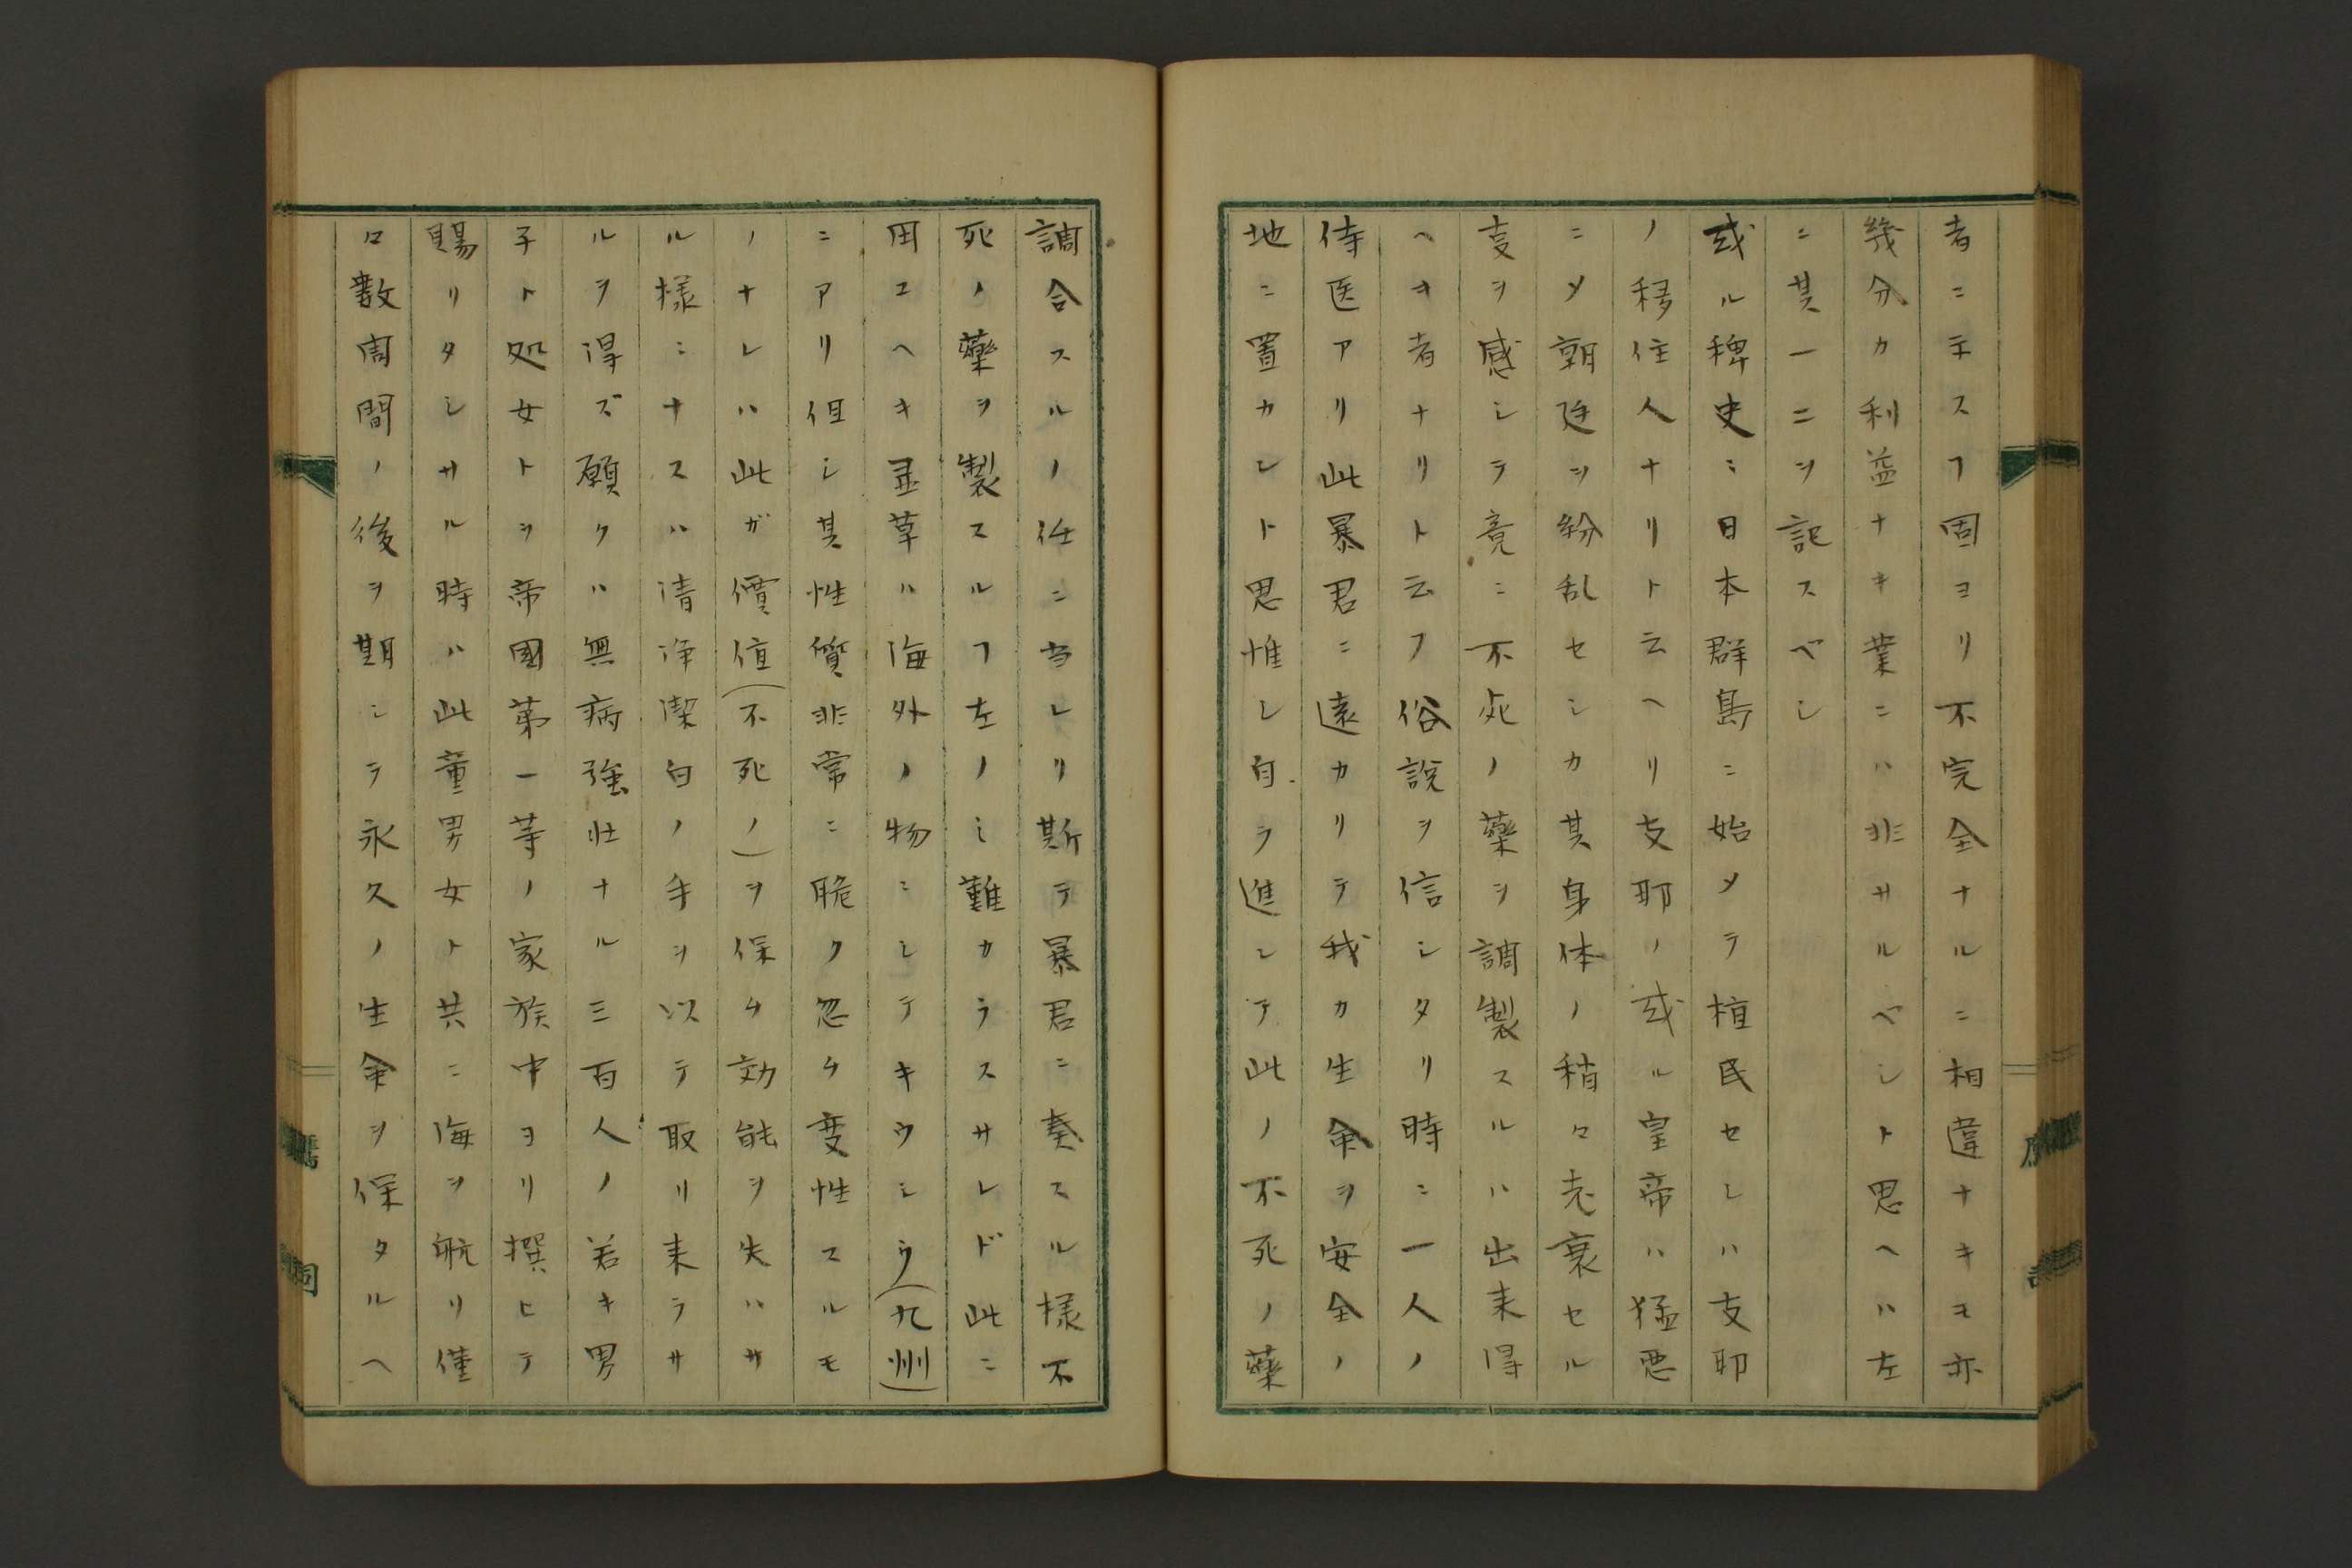 者ニテスフ固ヨリ不完全ナルニ相違ナキモ亦
幾分カ利益ナキ業ニハ非サルベシト思ヘハ左
ニ其一二ヲ記スベシ
或ル稗史ニ日本群島ニ始メテ植民セシハ支耶
ノ移住人ナリト云ヘリ支耶ノ或ル皇帝ハ猛悪
ニメ朝廷ヲ紛乱セシカ其身体ノ稍々老衰セル
支ヲ感シテ竟ニ不死ノ藥ヲ調製スルハ出来得
ヘキ者ナリト云フ俗說ヲ信シタリ時ニ一人ノ
侍医アリ此暴君ニ遠カリテ我カ生命ヲ安全ノ
地ニ置カント思惟シ自ラ進ンテ此ノ不死ノ藥
調合スルノ任ニ当レリ斯テ暴君ニ奏スル様不
死ノ藥ヲ製スルフ左ノミ難カラスサレド此ニ
用ユヘキ𤯝草ハ海外ノ物ニシテキウシウ(九州)
ニアリ但シ其性質非常ニ脆ク忽チ変性スルモ
ノナレハ此ガ價値(不死ノ)ヲ保チ効能ヲ失ハサ
ル様ニナスハ清浄潔白ノ手ヲ以テ取リ来ラサ
ルヲ得ズ願クハ無病強壮ナル三百人ノ若キ男
子ト処女トヲ帝國第一等ノ家族中ヨリ撰ヒテ
賜リタシサル時ハ此童男女ト共ニ海ヲ航リ僅
ロ数周間ノ後ヲ期シテ永久ノ生命ヲ保タルヘ